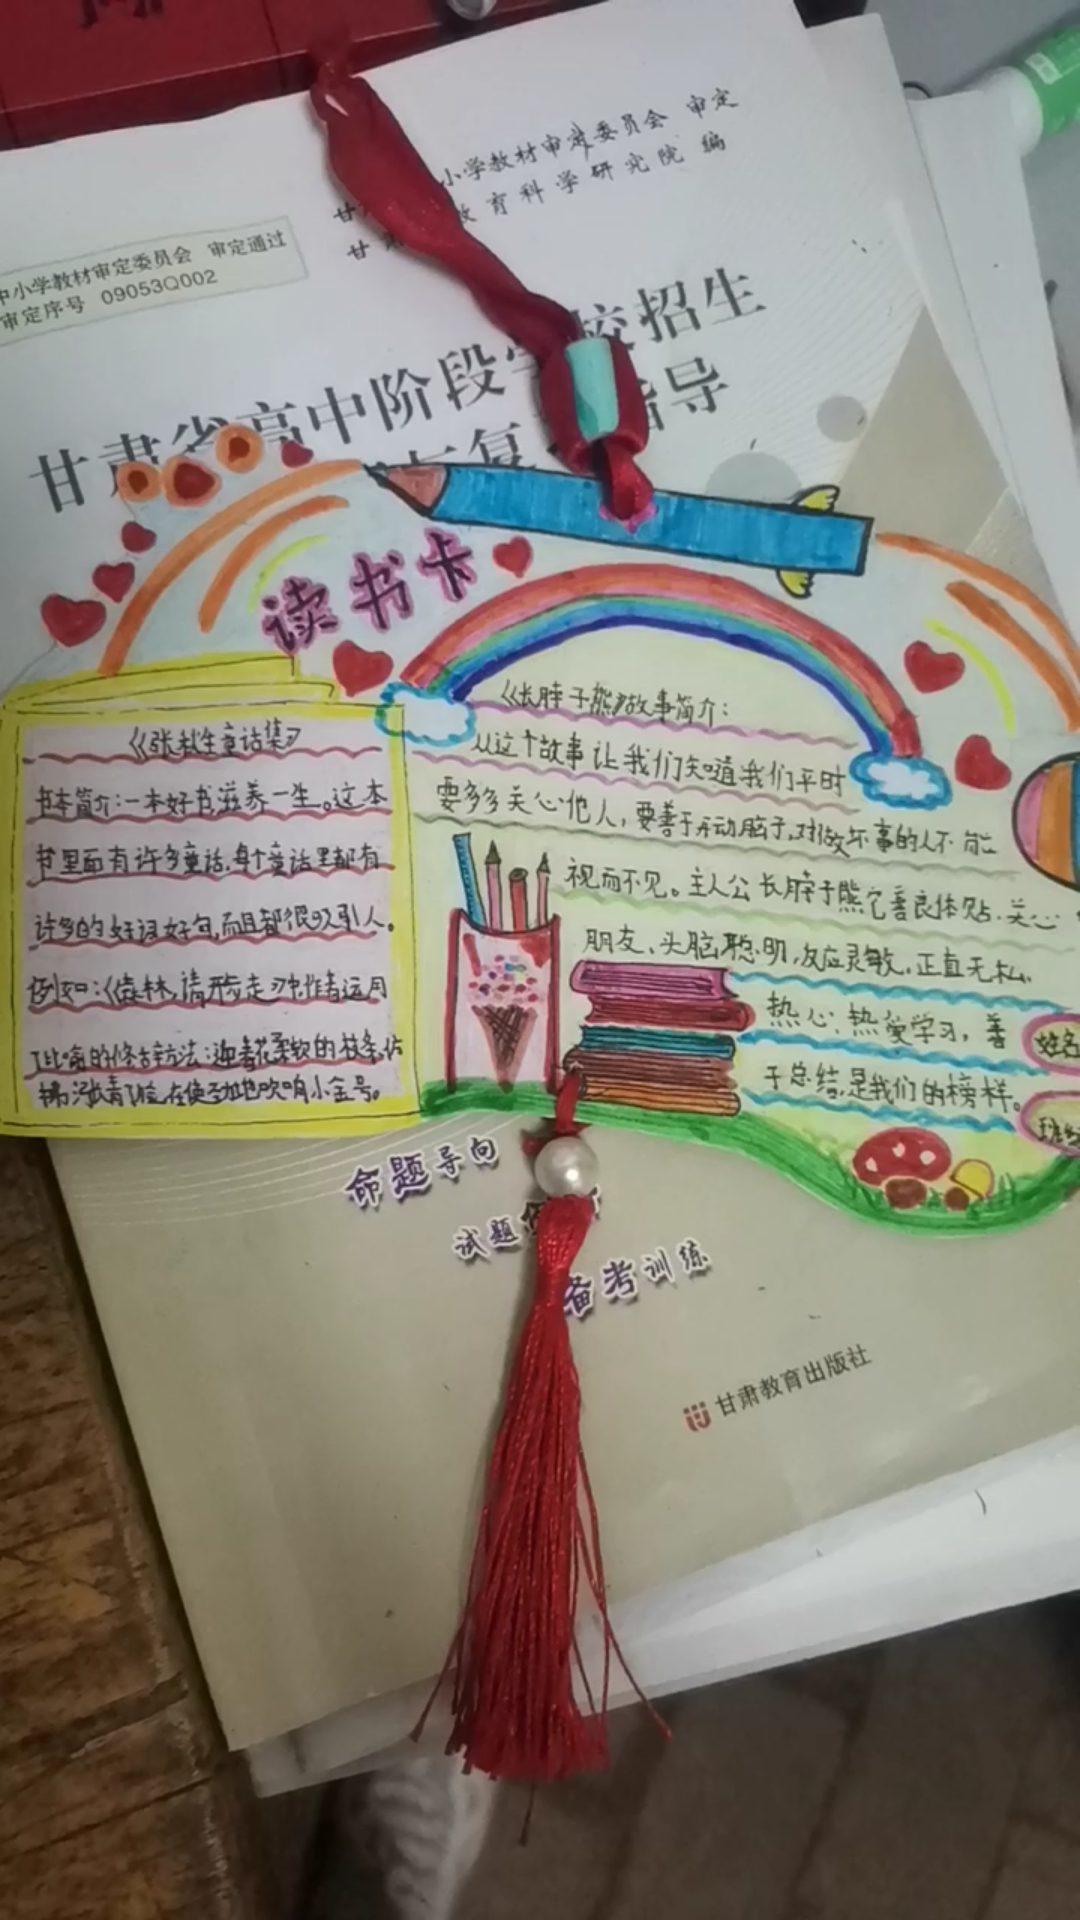 小学教材审定委员会 审定
教育科学研究院 编
中小学教材审定委员会 审定通过
审定序号 09053Q002
甘肃省高中阶段学校招生
复 指导
读书卡
《张秋生童话集》
书本简介:一本好书,滋养一生。这本
书里面有许多童话,每个童话里都有
许多的好词好句,而且都很吸引人。
例如:《森林,请形走》中,作者运用
了比喻的修辞方法:迎春花柔软的枝条,仿
佛涨青脸,在使劲地吹响小金号。
《长脖子熊》故事简介:
从这个故事让我们知道我们平时
要多多关心他人,要善于开动脑子,对做坏事的人不能
视而不见。主人公长脖子熊它善良体贴、关心
朋友、头脑聪明,反应灵敏,正直无私,
热心、热爱学习,善
于总结,是我们的榜样。
姓名
班级
命题导向
试题
备考训练
甘肃教育出版社